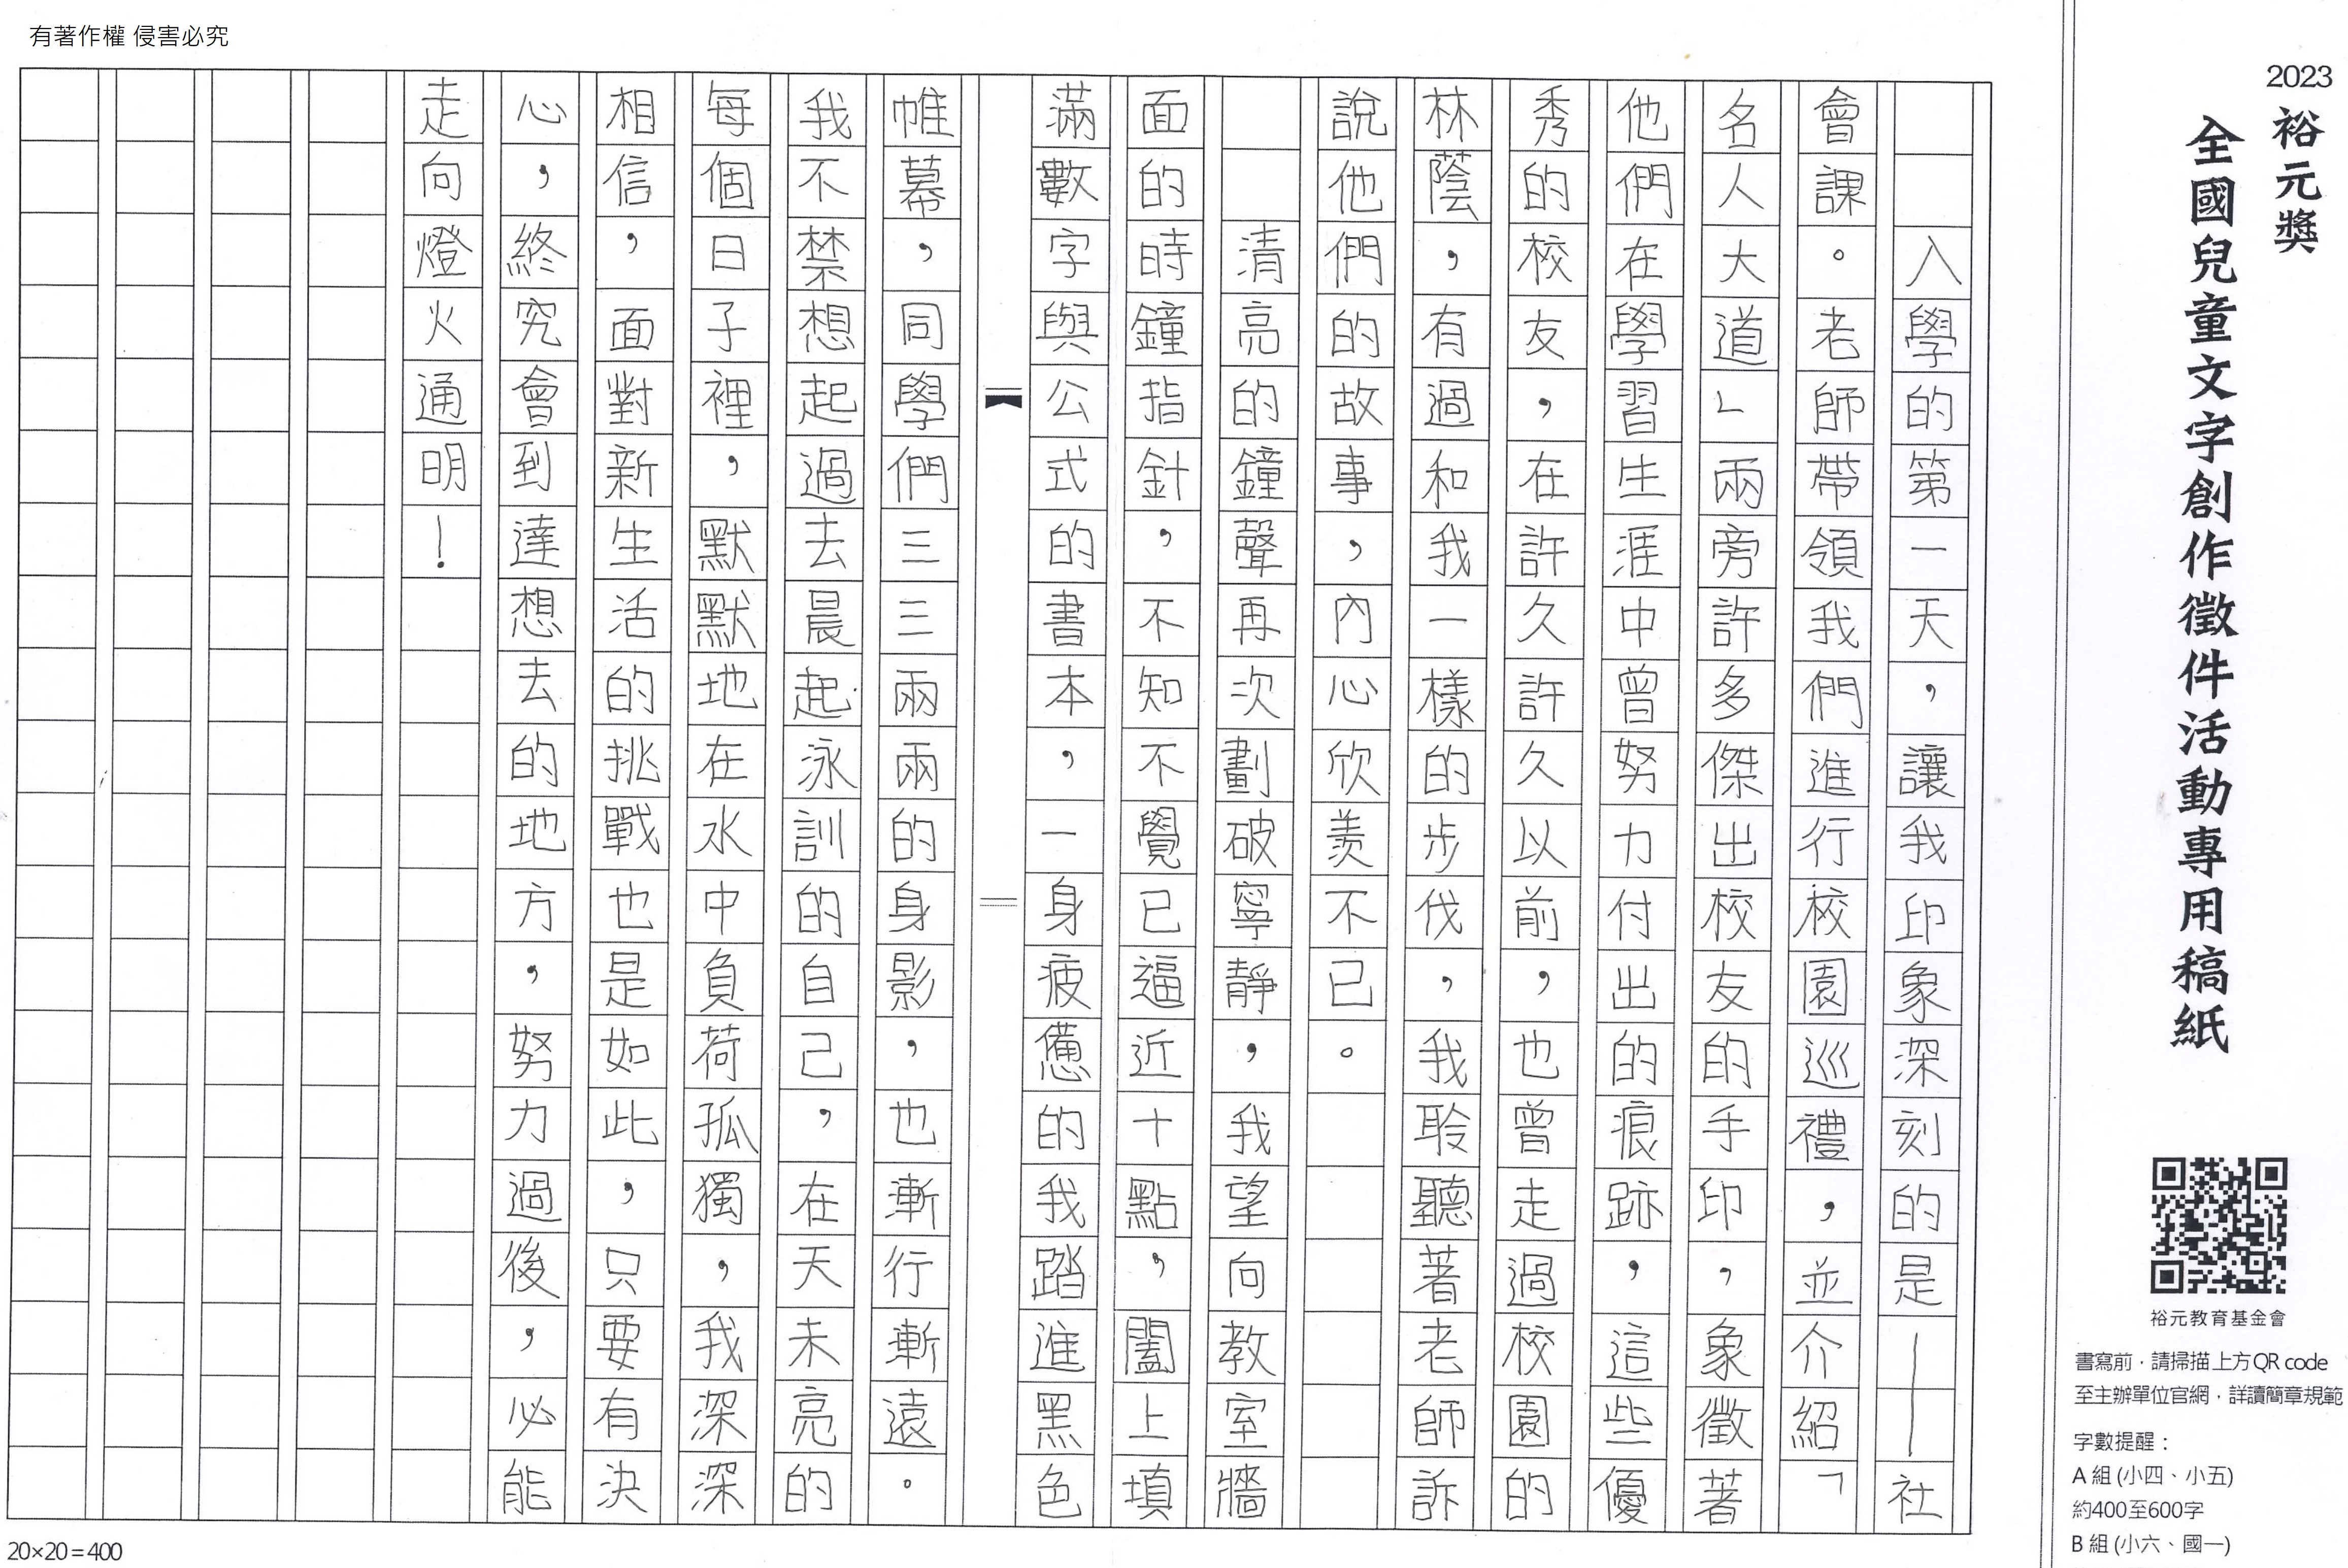 有著作權 侵害必究
2023 裕元獎
全國兒童文字創作徵件活動專用稿紙
裕元教育基金會
書寫前，請掃描上方QR code
至主辦單位官網，詳讀簡章規範
字數提醒：
A 組 (小四、小五)
約400至600字
B 組 (小六、國一)
入學的第一天，讓我印象深刻的是——社
會課。老師帶領我們進行校園巡禮，並介紹「
名人大道」兩旁許多傑出校友的手印，象徵著
他們在學習生涯中曾努力付出的痕跡，這些優
秀的校友，在許久許久以前，也曾走過校園的
林蔭，有過和我一樣的步伐，我聆聽著老師訴
說他們的故事，內心欣羨不已。
清亮的鐘聲再次劃破寧靜，我望向教室牆
面的時鐘指針，不知不覺已逼近十點，闔上填
滿數字與公式的書本，一身疲憊的我踏進黑色
帷幕，同學們三三兩兩的身影，也漸行漸遠。
我不禁想起過去晨起泳訓的自己，在天未亮的
每個日子裡，默默地在水中負荷孤獨，我深深
相信，面對新生活的挑戰也是如此，只要有決
心，終究會到達想去的地方，努力過後，必能
走向燈火通明！
20×20=400